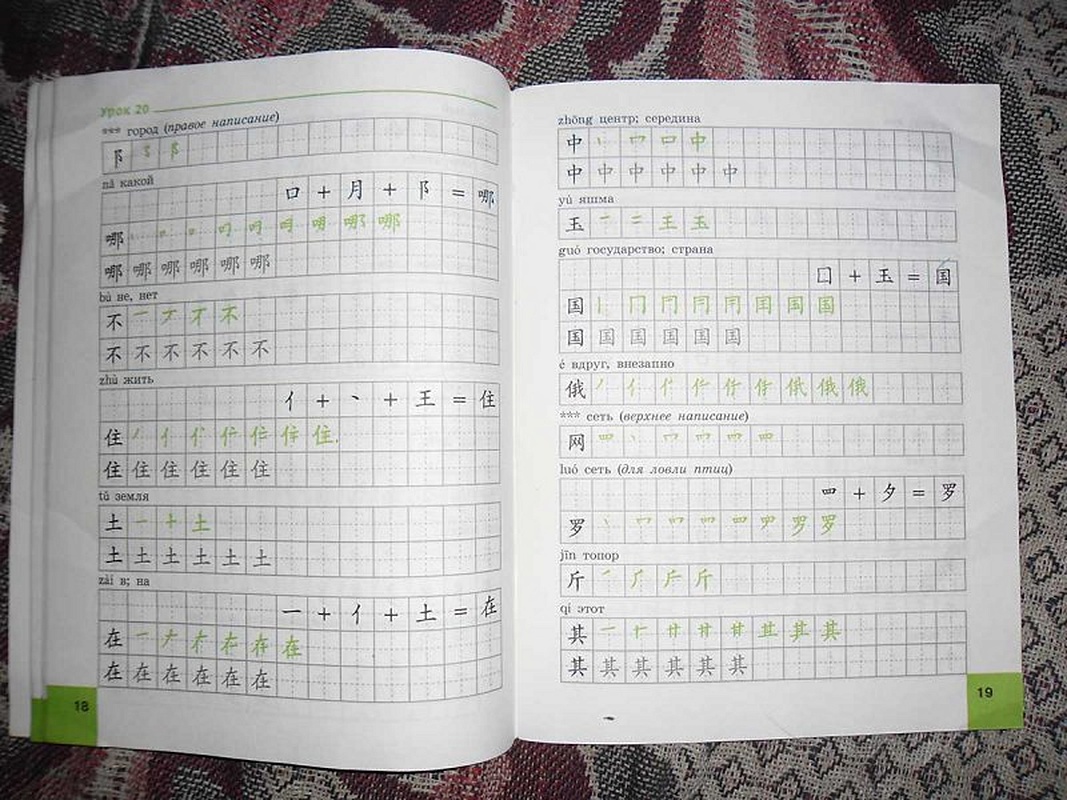 Урок 20
*** город (правое написание)
阝
nǎ какой
口 + 月 + 阝 = 哪
哪
哪 哪 哪 哪 哪 哪
bù не, нет
不 一 丆 不 不
不 不 不 不 不 不
zhù жить
亻 + 丶 + 王 = 住
住 丿 亻 住
住 住 住 住 住 住
tǔ земля
土 一 十 土
土 土 土 土 土 土
zài в; на
一 + 亻 + 土 = 在
在 一 在
在 在 在 在 在 在
18
zhōng центр; середина
中 丨 口 中
中 中 中 中 中 中
yù яшма
玉 一 二 王 玉
guó государство; страна
囗 + 玉 = 国
国 丨 冂 国
国 国 国 国 国 国
é вдруг, внезапно
俄 丿 亻 俄
*** сеть (верхнее написание)
网 罒 丶 罒
luó сеть (для ловли птиц)
罒 + 夕 = 罗
罗 丶 罒 罗
jīn топор
斤 斤
qí этот
其 一 其
其 其 其 其 其 其
19